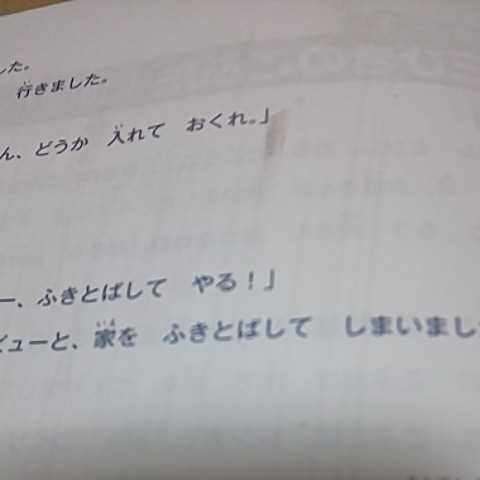 した。
行きました。
ん、どうか 入れて おくれ。」
ー、ふきとばして やる！」
ビューと、家を ふきとばして しまいまし